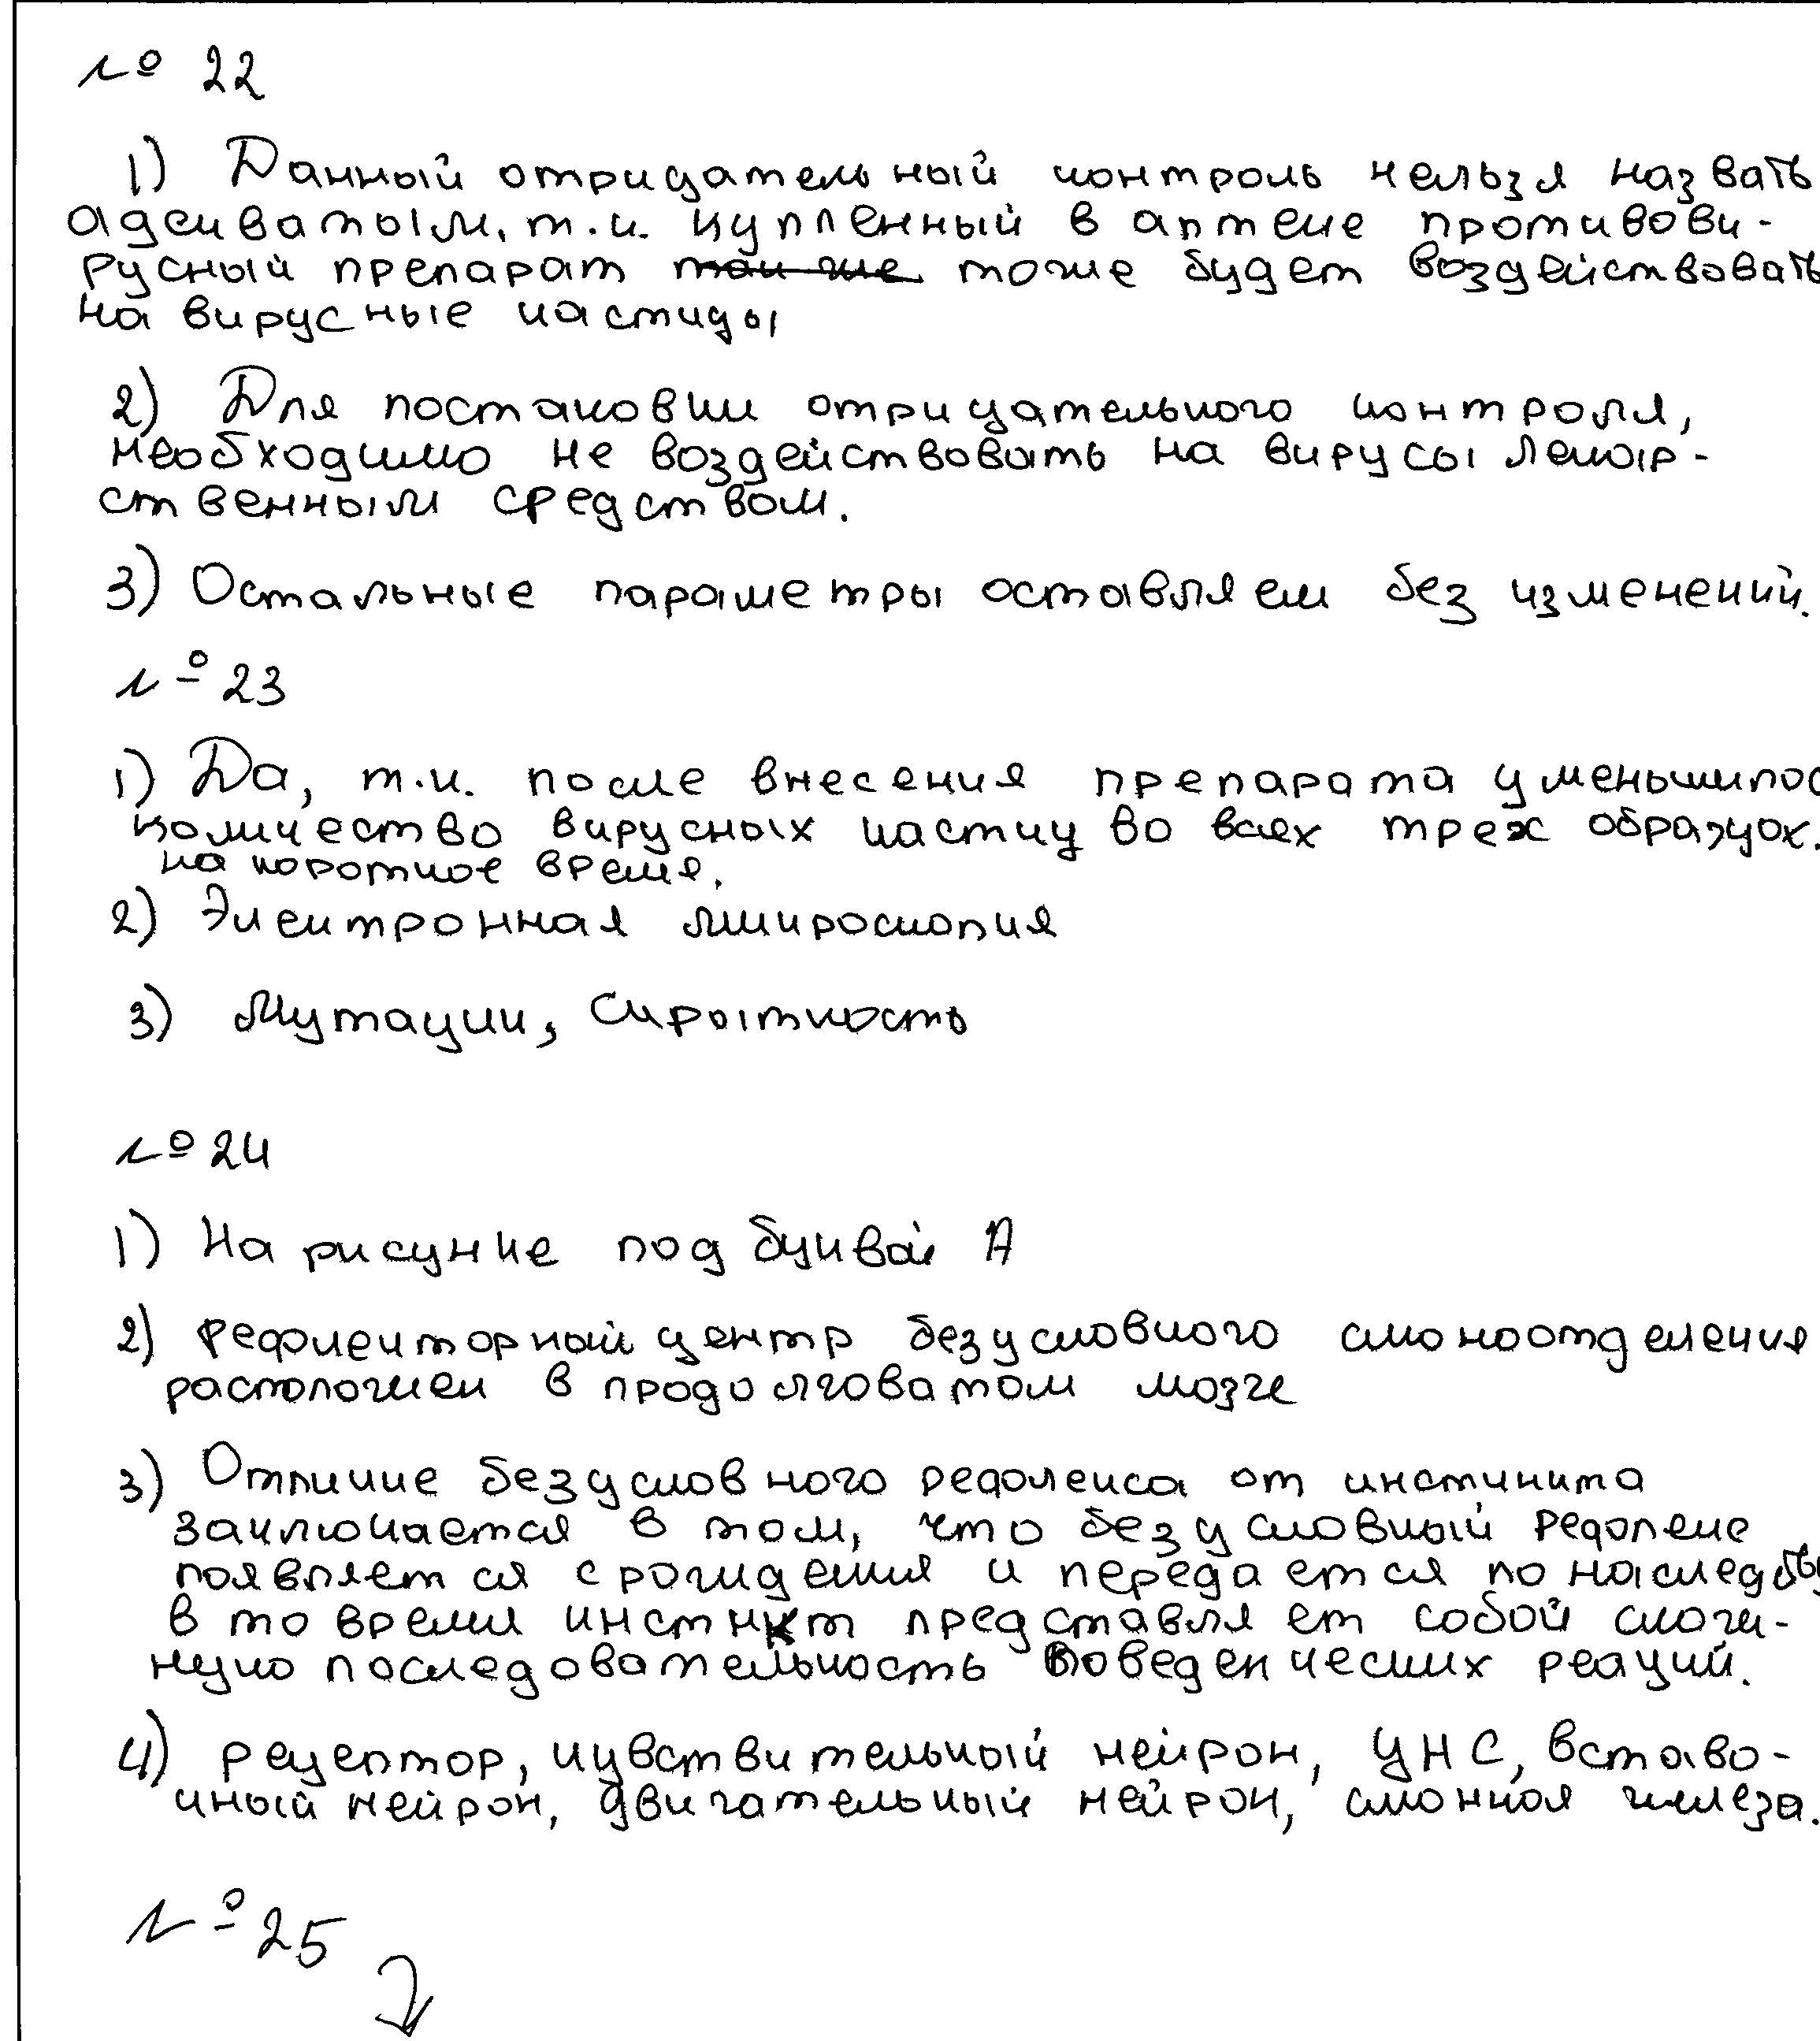 № 22
1) Данный отрицательный контроль нельзя назвать
адекватым, т.к. купленный в аптеке противови-
русный препарат так же тоже будет воздействовать
на вирусные частицы
2) Для постановки отрицательного контроля,
необходимо не воздействовать на вирусы лекар-
ственным средством.
3) Остальные параметры оставляем без изменений.
№ 23
1) Да, т.к. после внесения препарата уменьшилос
количество вирусных частиц во всех трех образцах.
на короткое время.
2) Электронная микроскопия
3) Мутации, Скрытность
№ 24
1) На рисунке под буквой А
2) Рефлекторный центр безусловного слюноотделения
расположен в продолговатом мозге
3) Отличие безусловного рефлекса от инстинкта
заключается в том, что безусловный рефлекс
появляется с рождения и передается по наследству
в то время инстнкт представляет собой слож-
ную последовательность поведенческих реакций.
4) рецептор, чувствительный нейрон, ЦНС, вставо-
чный нейрон, двигательный нейрон, слюнная железа.
№ 25